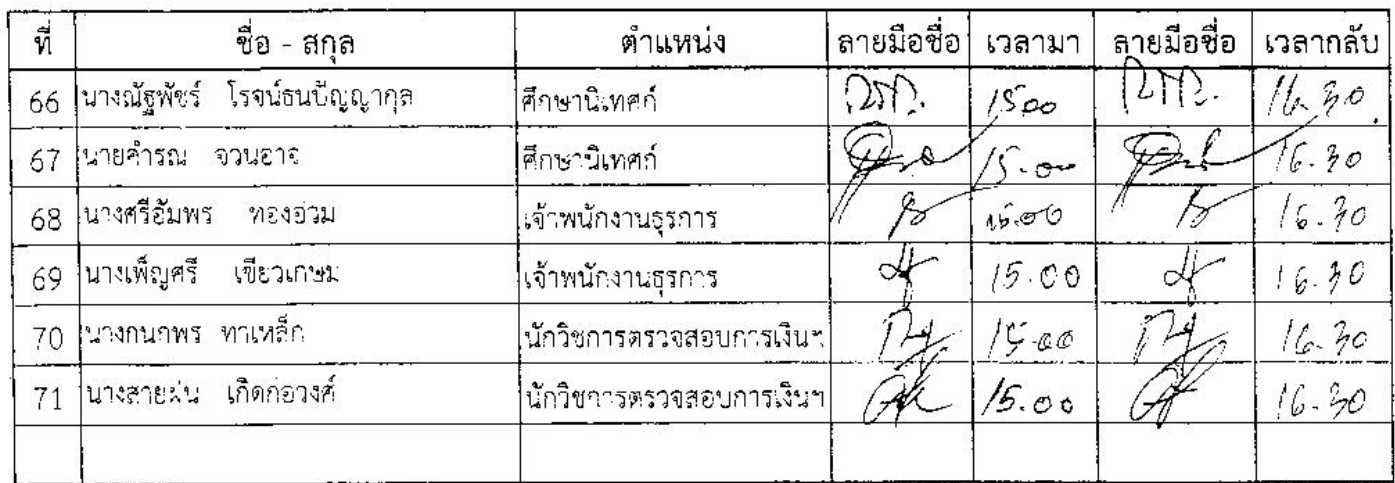 ที่ ชื่อ - สกุล ตำแหน่ง ลายมือชื่อ เวลามา ลายมือชื่อ เวลากลับ
66 นางณัฐพัชร์ โรจน์ธนปัญญากุล ศึกษานิเทศก์ 15.00 16.30
67 นายคำรณ จวนอาจ ศึกษานิเทศก์ 15.00 16.30
68 นางศรีอัมพร ทองอ่วม เจ้าพนักงานธุรการ 15.00 16.30
69 นางเพ็ญศรี เขียวเกษม เจ้าพนักงานธุรการ 15.00 16.30
70 นางกนกพร ทาเหล็ก นักวิชการตรวจสอบการเงินฯ 15.00 16.30
71 นางสายฝน เกิดก่อวงศ์ นักวิชการตรวจสอบการเงินฯ 15.00 16.30